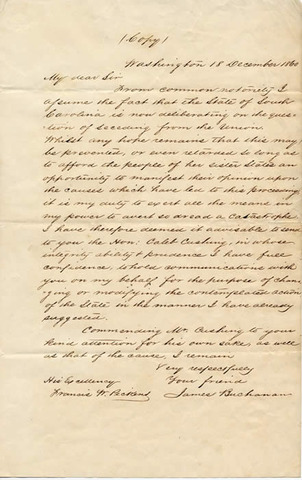 (Copy)
Washington 18 December 1860
My dear Sir
From common notoriety I
assume the fact that the State of South
Carolina is now deliberating on the ques-
tion of seceding from the Union.
Whilst any hope remains that this may
be prevented, or even retarded so long as
to afford the people of her sister States an
opportunity to manifest their opinion upon
the causes which have led to this proceeding
it is my duty to exert all the means in
my power to avert so dread a catastrophe
I have therefore deemed it advisable to send
to you the Hon: Caleb Cushing, in whose
integrity ability & prudence I have full
confidence, to hold communications with
you on my behalf for the purpose of chan-
ging or modifying the contemplated action
of the State in the manner I have already
suggested.
Commending Mr. Cushing to your
kind attention for his own sake, as well
as that of the cause, I remain
Very respectfully
His Excellency Your friend
Francis W. Pickens James Buchanan